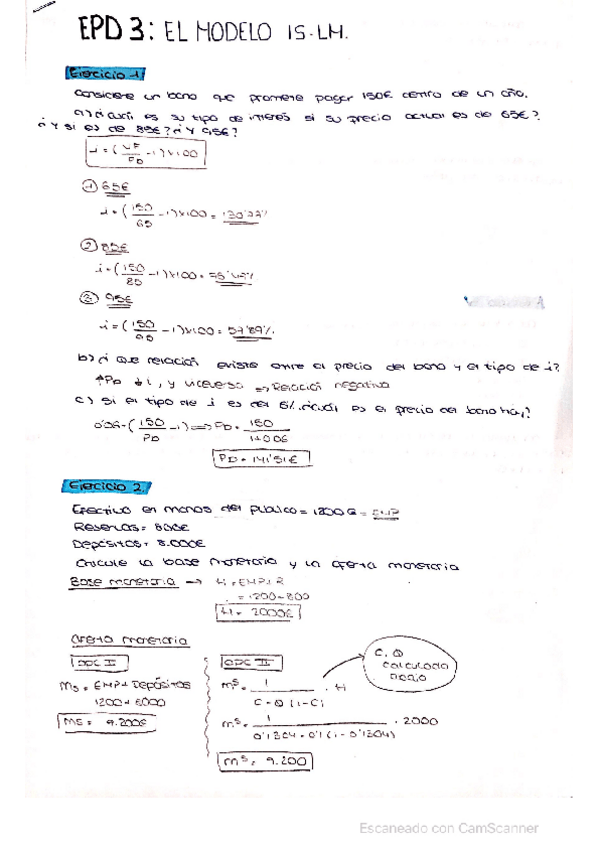 EPD 3: EL MODELO IS-LM.
Ejercicio 1
Considere un bono que promete pagar 150€ dentro de un año.
a) ¿Cuál es su tipo de interés si su precio actual es de 65€?
¿Y si es de 85€? ¿Y 95€?
i = (VF/PD - 1) x 100
① 65€
i = (150/65 - 1) x 100 = 130'77%
② 85€
i = (150/85 - 1) x 100 = 76'47%
③ 95€
i = (150/95 - 1) x 100 = 57'89%
b) ¿ Que relación existe entre el precio del bono y el tipo de i?
↑PD ↓i, y viceversa => Relación negativa
c) Si el tipo de i es del 6% ¿cuál es el precio del bono hoy?
0'06 = (150/PD - 1) => PD = 150/1+0'06
PD = 141'51€
Ejercicio 2
Efectivo en manos del público = 1200€ = EMP
Reservas = 800€
Depósitos = 8.000€
Calcule la base monetaria y la oferta monetaria
Base monetaria → H = EMP + R
= 1200 + 800
H = 2000€
Oferta monetaria
OPC I
Ms = EMP + Depósitos
1200 + 8000
Ms = 9.200€
OPC II
Ms = 1/C + θ (1-C) · H
Ms = 1/0'1304 + 0'1 (1 - 0'1304) · 2000
Ms = 9.200
C, θ
calculado
Escaneado con CamScanner